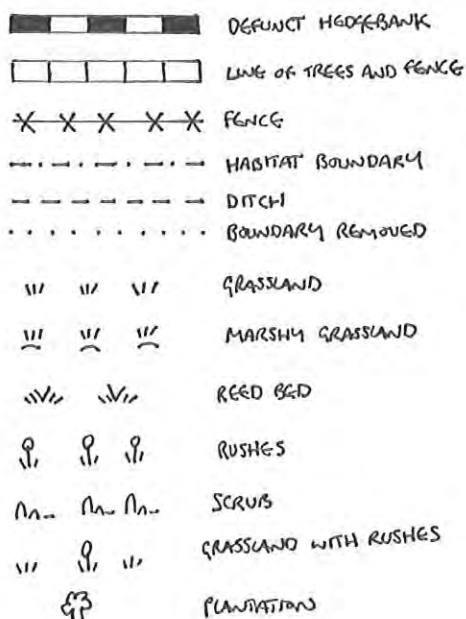 DEFUNCT HEDGEBANK
LINE OF TREES AND FENCE
FENCE
HABITAT BOUNDARY
DITCH
BOUNDARY REMOVED
GRASSLAND
MARSHY GRASSLAND
REED BED
RUSHES
SCRUB
GRASSLAND WITH RUSHES
PLANTATION